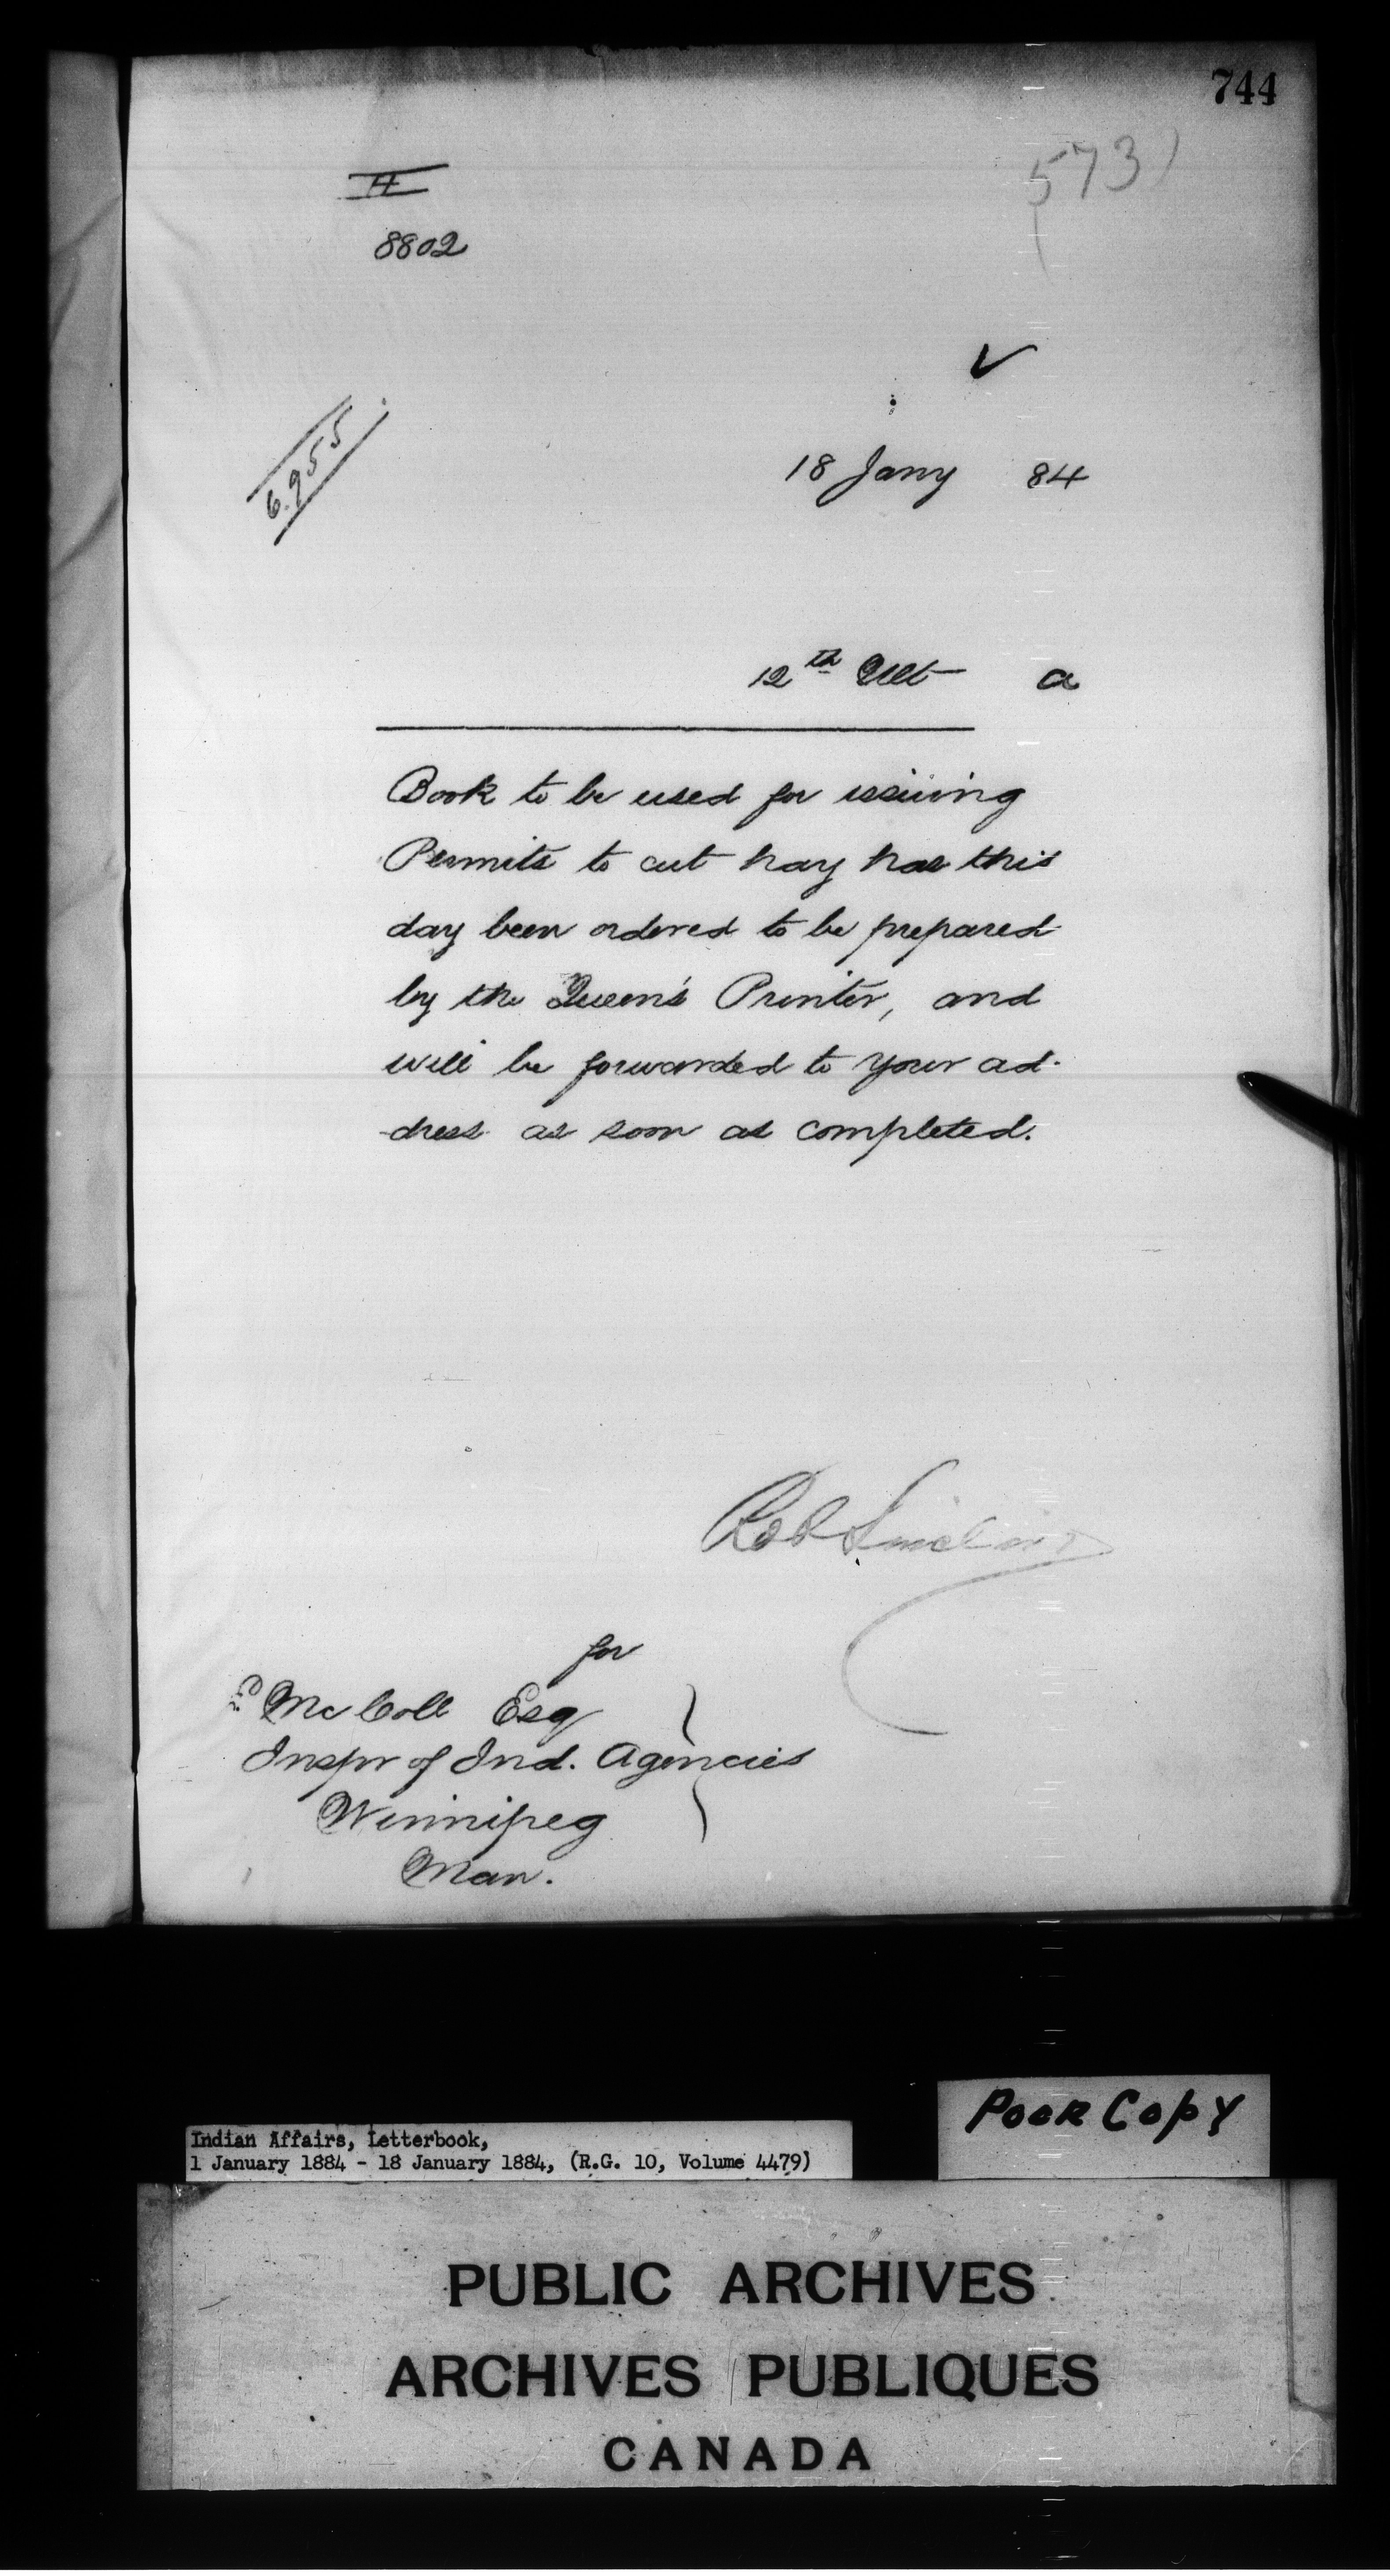 744
573
H
8802
6.955
18 Jany 84
12th Ult a
Book to be used for issuing
Permits to cut hay has this
day been ordered to be prepared
by the Queen's Printer, and
will be forwarded to your ad-
-dress as soon as completed.
Rob Sinclair
for
E McColl Esq
Inspr of Ind. Agencies
Winnipeg
Man.
Poor Copy
Indian Affairs, Letterbook,
1 January 1884 - 18 January 1884, (R.G. 10, Volume 4479)
PUBLIC ARCHIVES
ARCHIVES PUBLIQUES
CANADA